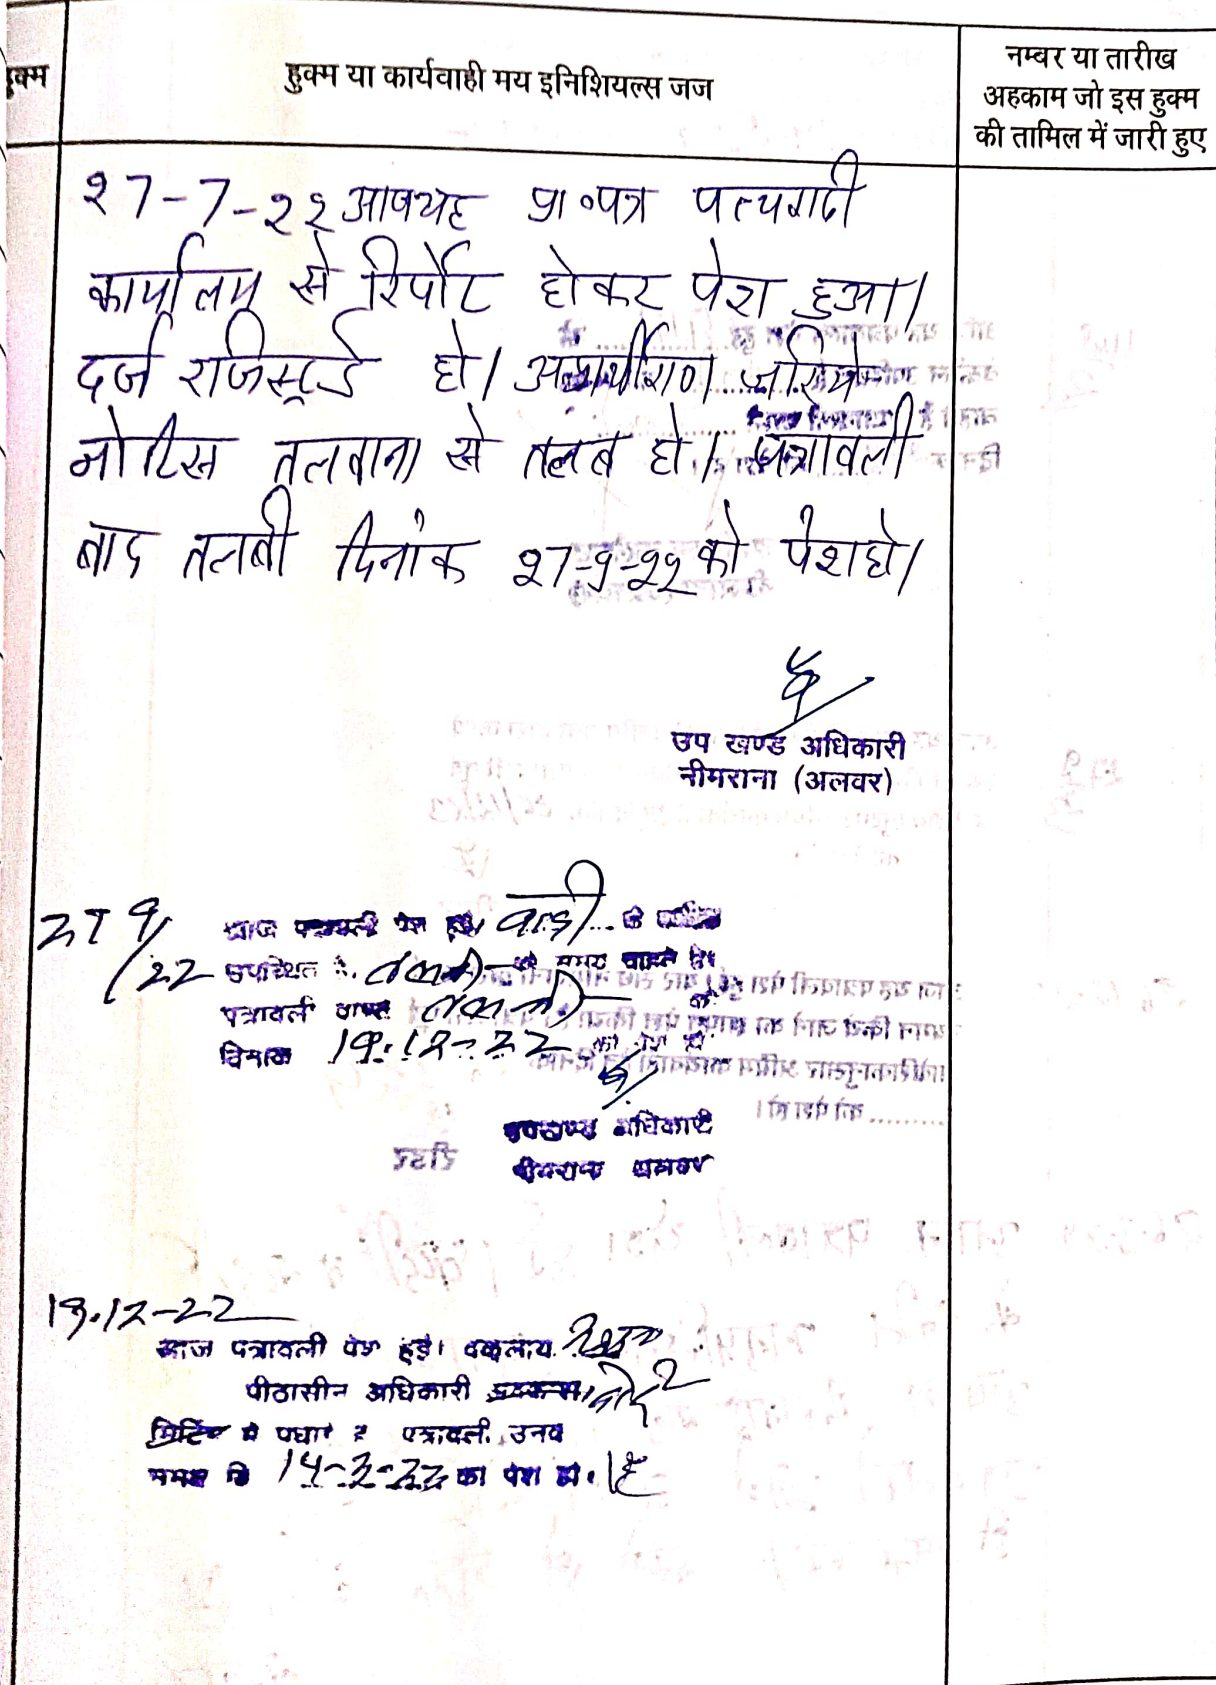 हुक्म
हुक्म या कार्यवाही मय इनिशियल्स जज
नम्बर या तारीख
अहकाम जो इस हुक्म
की तामिल में जारी हुए
२7-7-२२ आज यह प्रा०पत्र
कार्यालय से रिर्पोट होकर पेश हुआ।
दर्ज रजिस्टर्ड हो। अप्रार्थीगण जरिये
नोटिस तलवाना से तलब हो। पत्रावली
बाद तलबी दिनांक २7-9-२२ को पेश हो।
उप खण्ड अधिकारी
नीमराना (अलवर)
27 9/22
आज पत्रावली पेश हुई। वादी
उपस्थित तलबी को समय चाहते है।
पत्रावली वास्ते तलबी के
दिनांक 19.12-22 को पेश हो
उपखण्ड अधिकारी
नीमराना अलवर
19.12-22
आज पत्रावली पेश हुई। वकलाय
पीठासीन अधिकारी
मिटिंग मे पधारे है पत्रावली उनके
समक्ष दि को पेश हो।